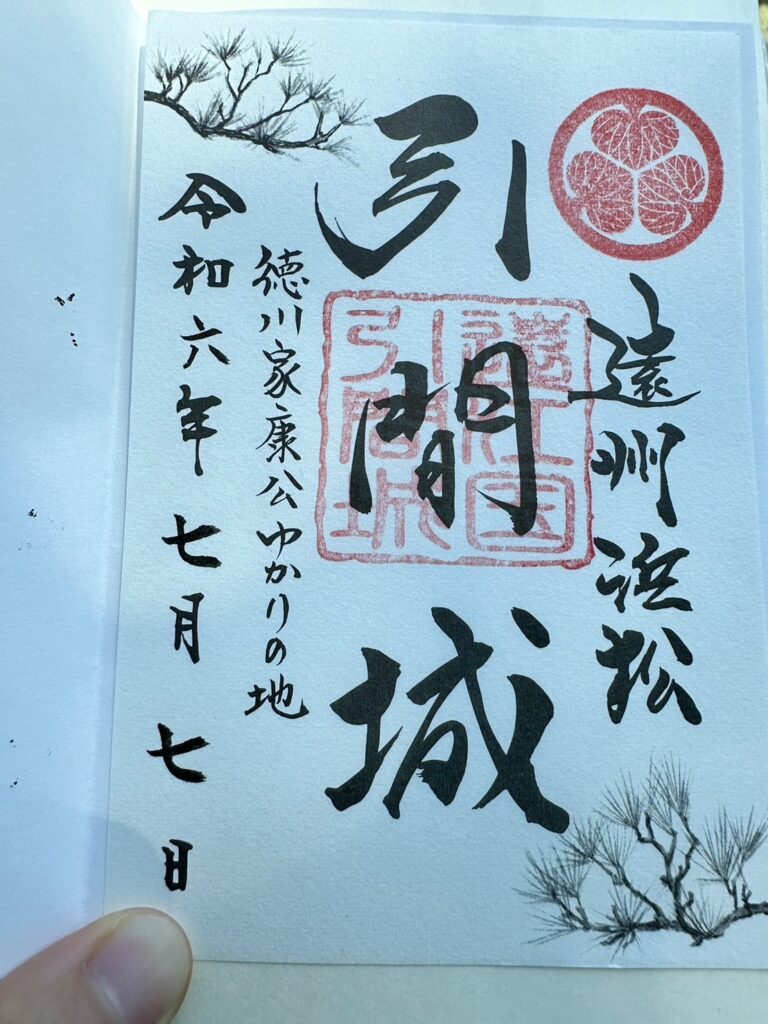 遠州浜松
引間城
遠江国
引間城
徳川家康公ゆかりの地
令和六年七月七日